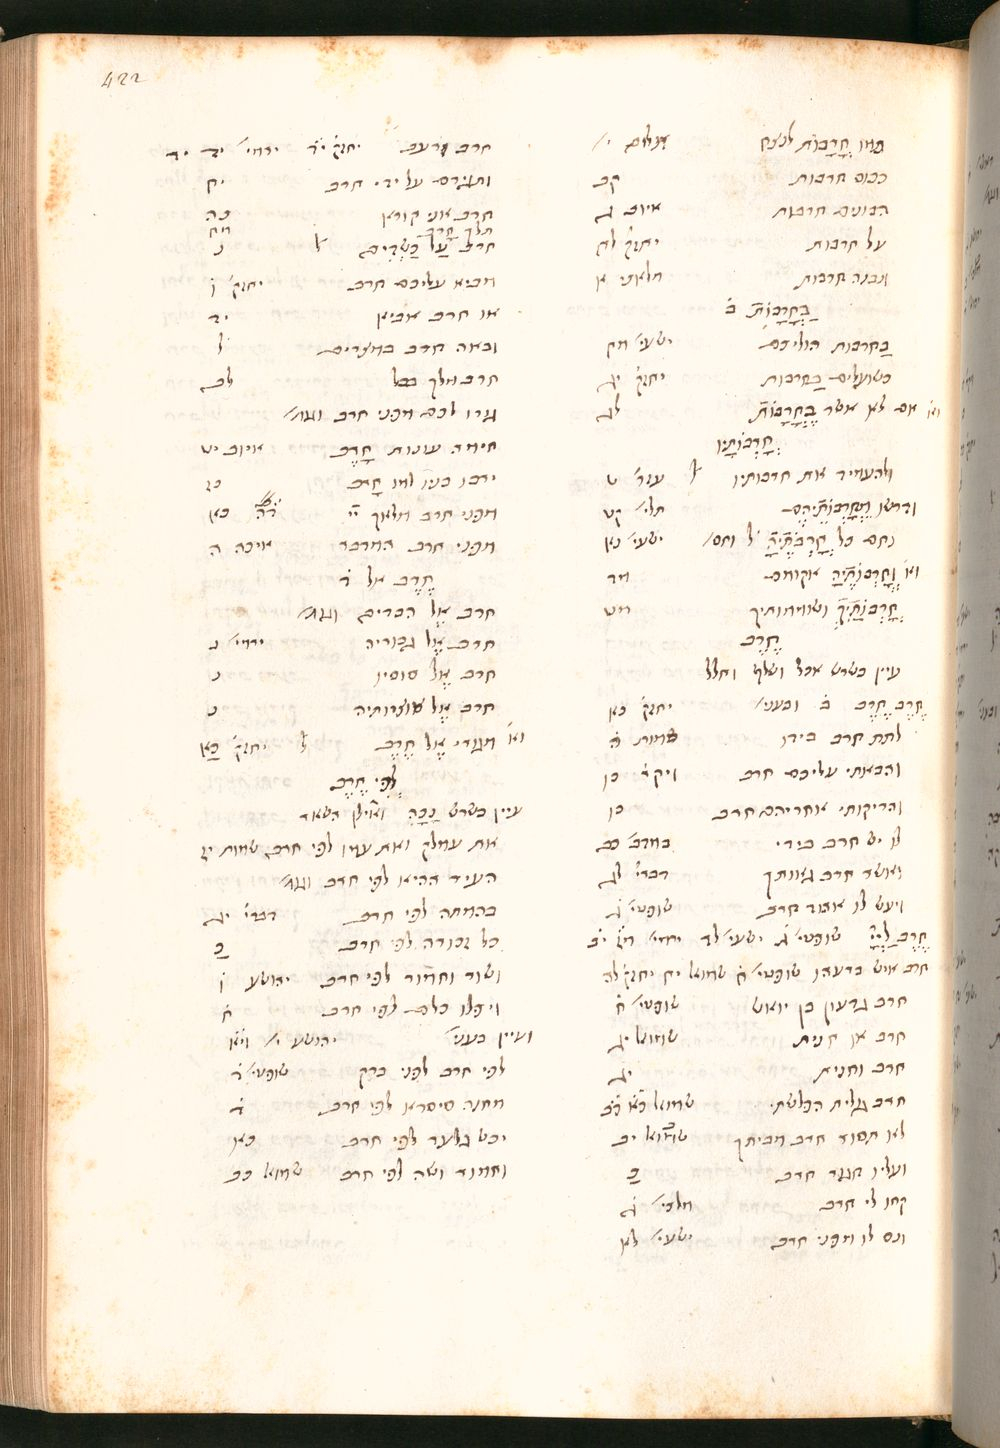 422
תמו חֳרָבוֹת לנצח תהלים י׳
ככוס חרבות קב
הבונים חרבות איוב ג
על חרבות יחזק׳ לח
ונבנה חרבות מלאכי א
בָּחֳרָבוֹת ב׳
בַחרבות הוליכם ישעי׳ מח
כשועלים בָּחרבות יחזק׳ יג
וא׳ אם לא אשר בֶּחֳרָבוֹת לג
חָרְבוֹתָיו
ולהעמיד את חרבותיו ל׳ עזר׳ ט
ודרשו מֵחָרְבוֹתֵיהֶם תלי׳ קט
נחם כל חָרְבוֹתֶיהָ ל׳ וחס׳ ישעי׳ נא
וא׳ וְחָרְבוֹתֶיהָ אקומם מד
חָרְבוֹתַיִךְ ושוממותיך מט
חֶרֶב
עיין בשרש אכל ושלף וחלל
חֶרֶב חֶרֶב ב׳ ובעני׳ יחזק׳ כא
לתת חרב בידו שמות ה׳
והבאתי עליכם חרב ויקר׳ כו
והריקותי אחריהם חרב כו
לו יש חרב בידי במדב׳ כב
ואשר חרב גאותך דברי׳ לג
ויעש לו אהוד חרב שופטי׳ ג׳
חֶרֶב לַיָי שופטי׳ ז׳ ישעי׳ לד ירמי׳ מז יב
חרב איש ברעהו שופטי׳ ז׳ שמואל יד יחזק׳ לח
חרב גדעון בן יואש שופטי׳ ז׳
חרב או חנית שמואל יג
חרב וחנית יג
חרב גלית הפלשתי שמואל כא כב
לא תסור חרב מביתך שמואל יב
ועליו חגור חרב כ
קחו לי חרב מלכי׳ ג׳
ונס לו מפני חרב ישעי׳ לא
חרב ורעב יחזק׳ ז׳ ירמי׳ יד יד
ותגירם על ידי חרב יח
חרב אני קורא כה
תלך חָרֶב מח
חרב עַל הַכַּשְׂדִים ל׳ נ
מביא עליכם חרב יחזק׳ ו
או חרב אביא יד
ובאה חרב במצרים ל
חרב מלך בבל לב
גורו לכם מפני חרב וגומ׳
חימה עונות חָרֶב איוב יט
ירבו בניו למו חָרֶב כז
מפני חרב מלאך יי׳ דה׳ כא
מפני חרב המדבר איכה ה
חֶרֶב אל ד׳
חרב אֶל הבדים וגומ׳
חרב אֶל גבוריה ירמי׳ נ
חרב אֶל סוסיו נ
חרב אֶל אוצרותיה נ
וא׳ מגורי אֶל חֶרֶב ל׳ יחזק׳ כא
לְפִי חֶרֶב
עיין בשרש נָכָה ואילן השאר
את עמלק ואת עמו לפי חרב שמות יז
העיר ההיא לפי חרב וגומ׳
בהמתה לפי חרב דברי׳ יג
כל זכורה לפי חרב כ
ושור וחמור לפי חרב יהושע ו
ויפלו כלם לפי חרב ח
ועיין בעני׳ יהושע י׳ ויא
לפי חרב לפני ברק שופטי׳ ד׳
מחנה סיסרא לפי חרב ד׳
יבש גלעד לפי חרב כא
וחמור ושה לפי חרב שמוא כב